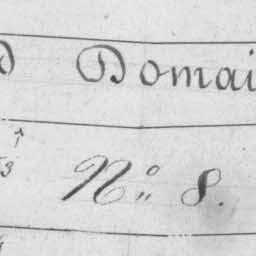 Domai
No. 8.